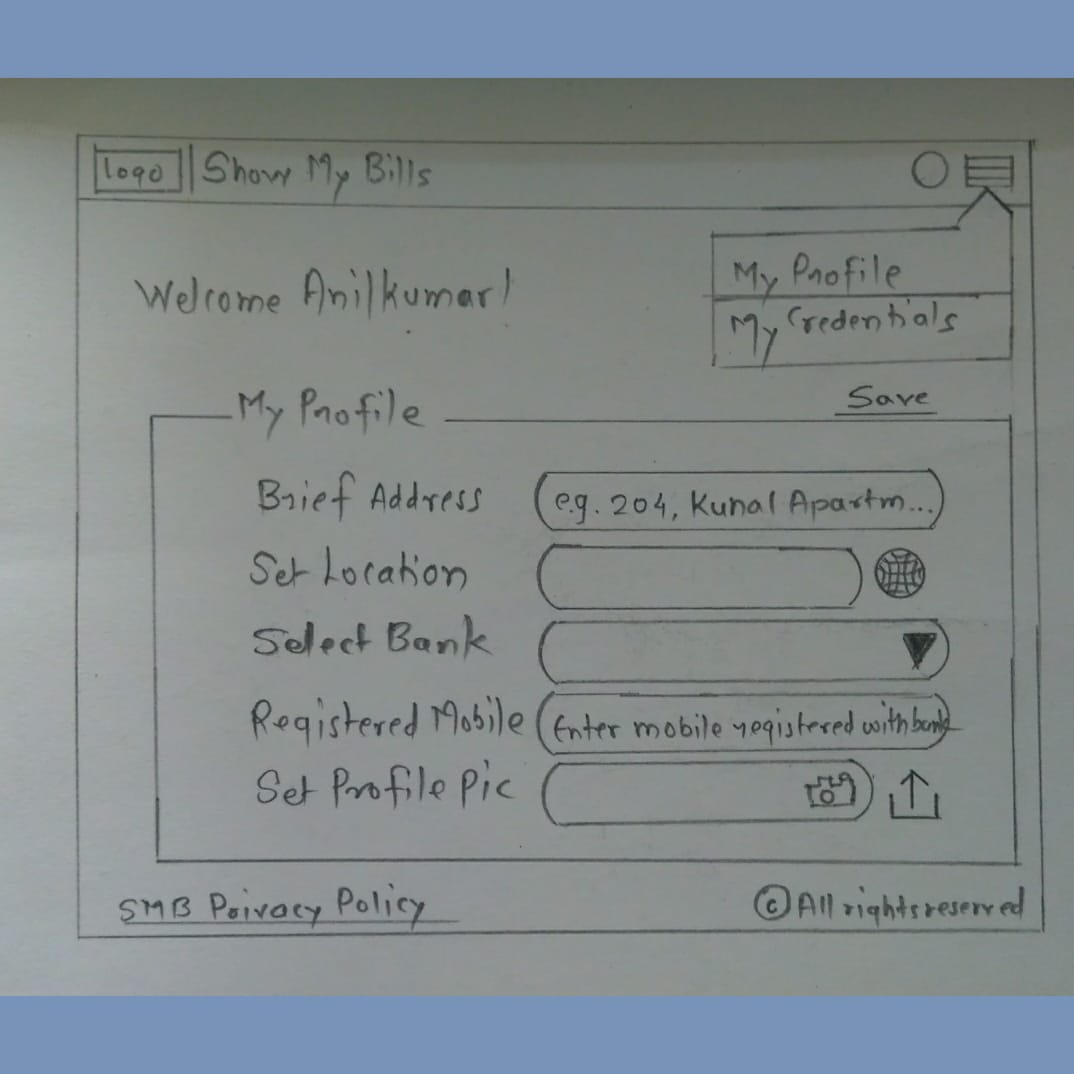 Logo Show My Bills
Welcome Anilkumar!
My Profile
My Credentials
Save
My Profile
Brief Address
e.g. 204, Kunal Apartm...
Set Location
Select Bank
Registered Mobile
Enter mobile registered with bank
Set Profile Pic
SMB Privacy Policy
© All rights reserved